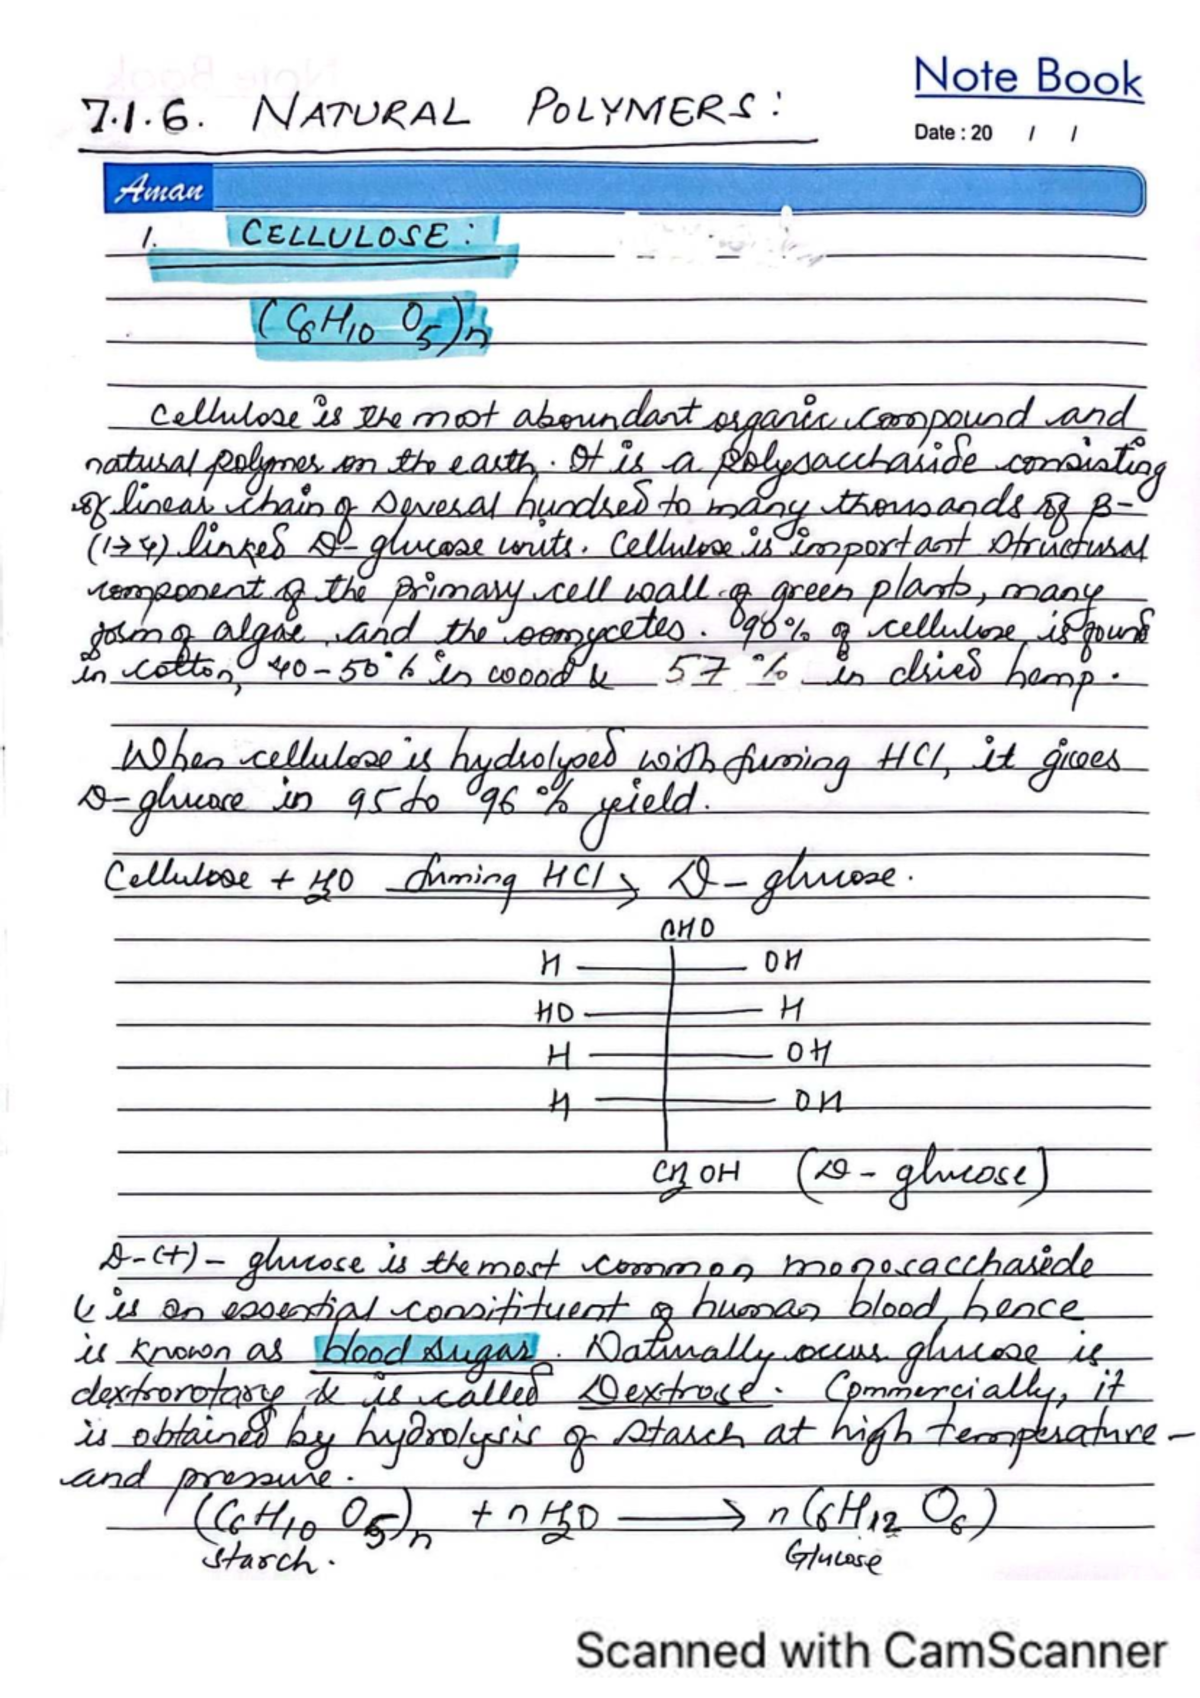 Note Book
7.1.6. NATURAL POLYMERS:
Date : 20 / /
Aman
1. CELLULOSE:
(C6H10 O5)n
Cellulose is the most aboundant organic compound and
natural polymer on the earth. It is a polysaccharide consisting
of linear chain of several hundred to many thousands of β-
(1→4) linked D-glucose units. Cellulose is important structural
component of the primary cell wall of green plants, many
form of algae and the oomycetes. 90% of cellulose is found
in cotton, 40-50% in wood & 57% in dried hemp.
When cellulose is hydrolysed with fuming HCl, it gives
D-glucose in 95 to 96% yield.
Cellulose + H2O fuming HCl → D-glucose.
CHO
H OH
HO H
H OH
H OH
CH2OH (D-glucose)
D-(+)-glucose is the most common monosaccharide
& is an essential consitituent of human blood, hence
is known as blood sugar. Naturally occur glucose is
dextrorotary & is called Dextrose. Commercially, it
is obtained by hydrolysis of starch at high temperature-
and pressure.
(C6H10 O5)n + nH2O → n(C6H12 O6)
Starch. Glucose
Scanned with CamScanner